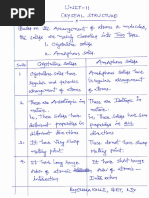 UNIT-II
CRYSTAL STRUCTURE
Based on the Arrangement of atoms or molecules,
the solids are mainly classified into Two Types
1. Crystalline solids
2. Amorphous solids
S.NO Crystalline solids Amorphous solids
1. Crystalline solids have regular and periodic arrangement of atoms
Amorphous solids have irregular arrangement of atoms
2. These are Anisotropic in nature.
i.e., These solids have different properties in different directions
These are Isotropic in nature
i.e., These solids have same properties in all directions
3. It have very sharp melting point
It does not have sharp melting point
4. It have long range order of atoms
It have short range order of atoms